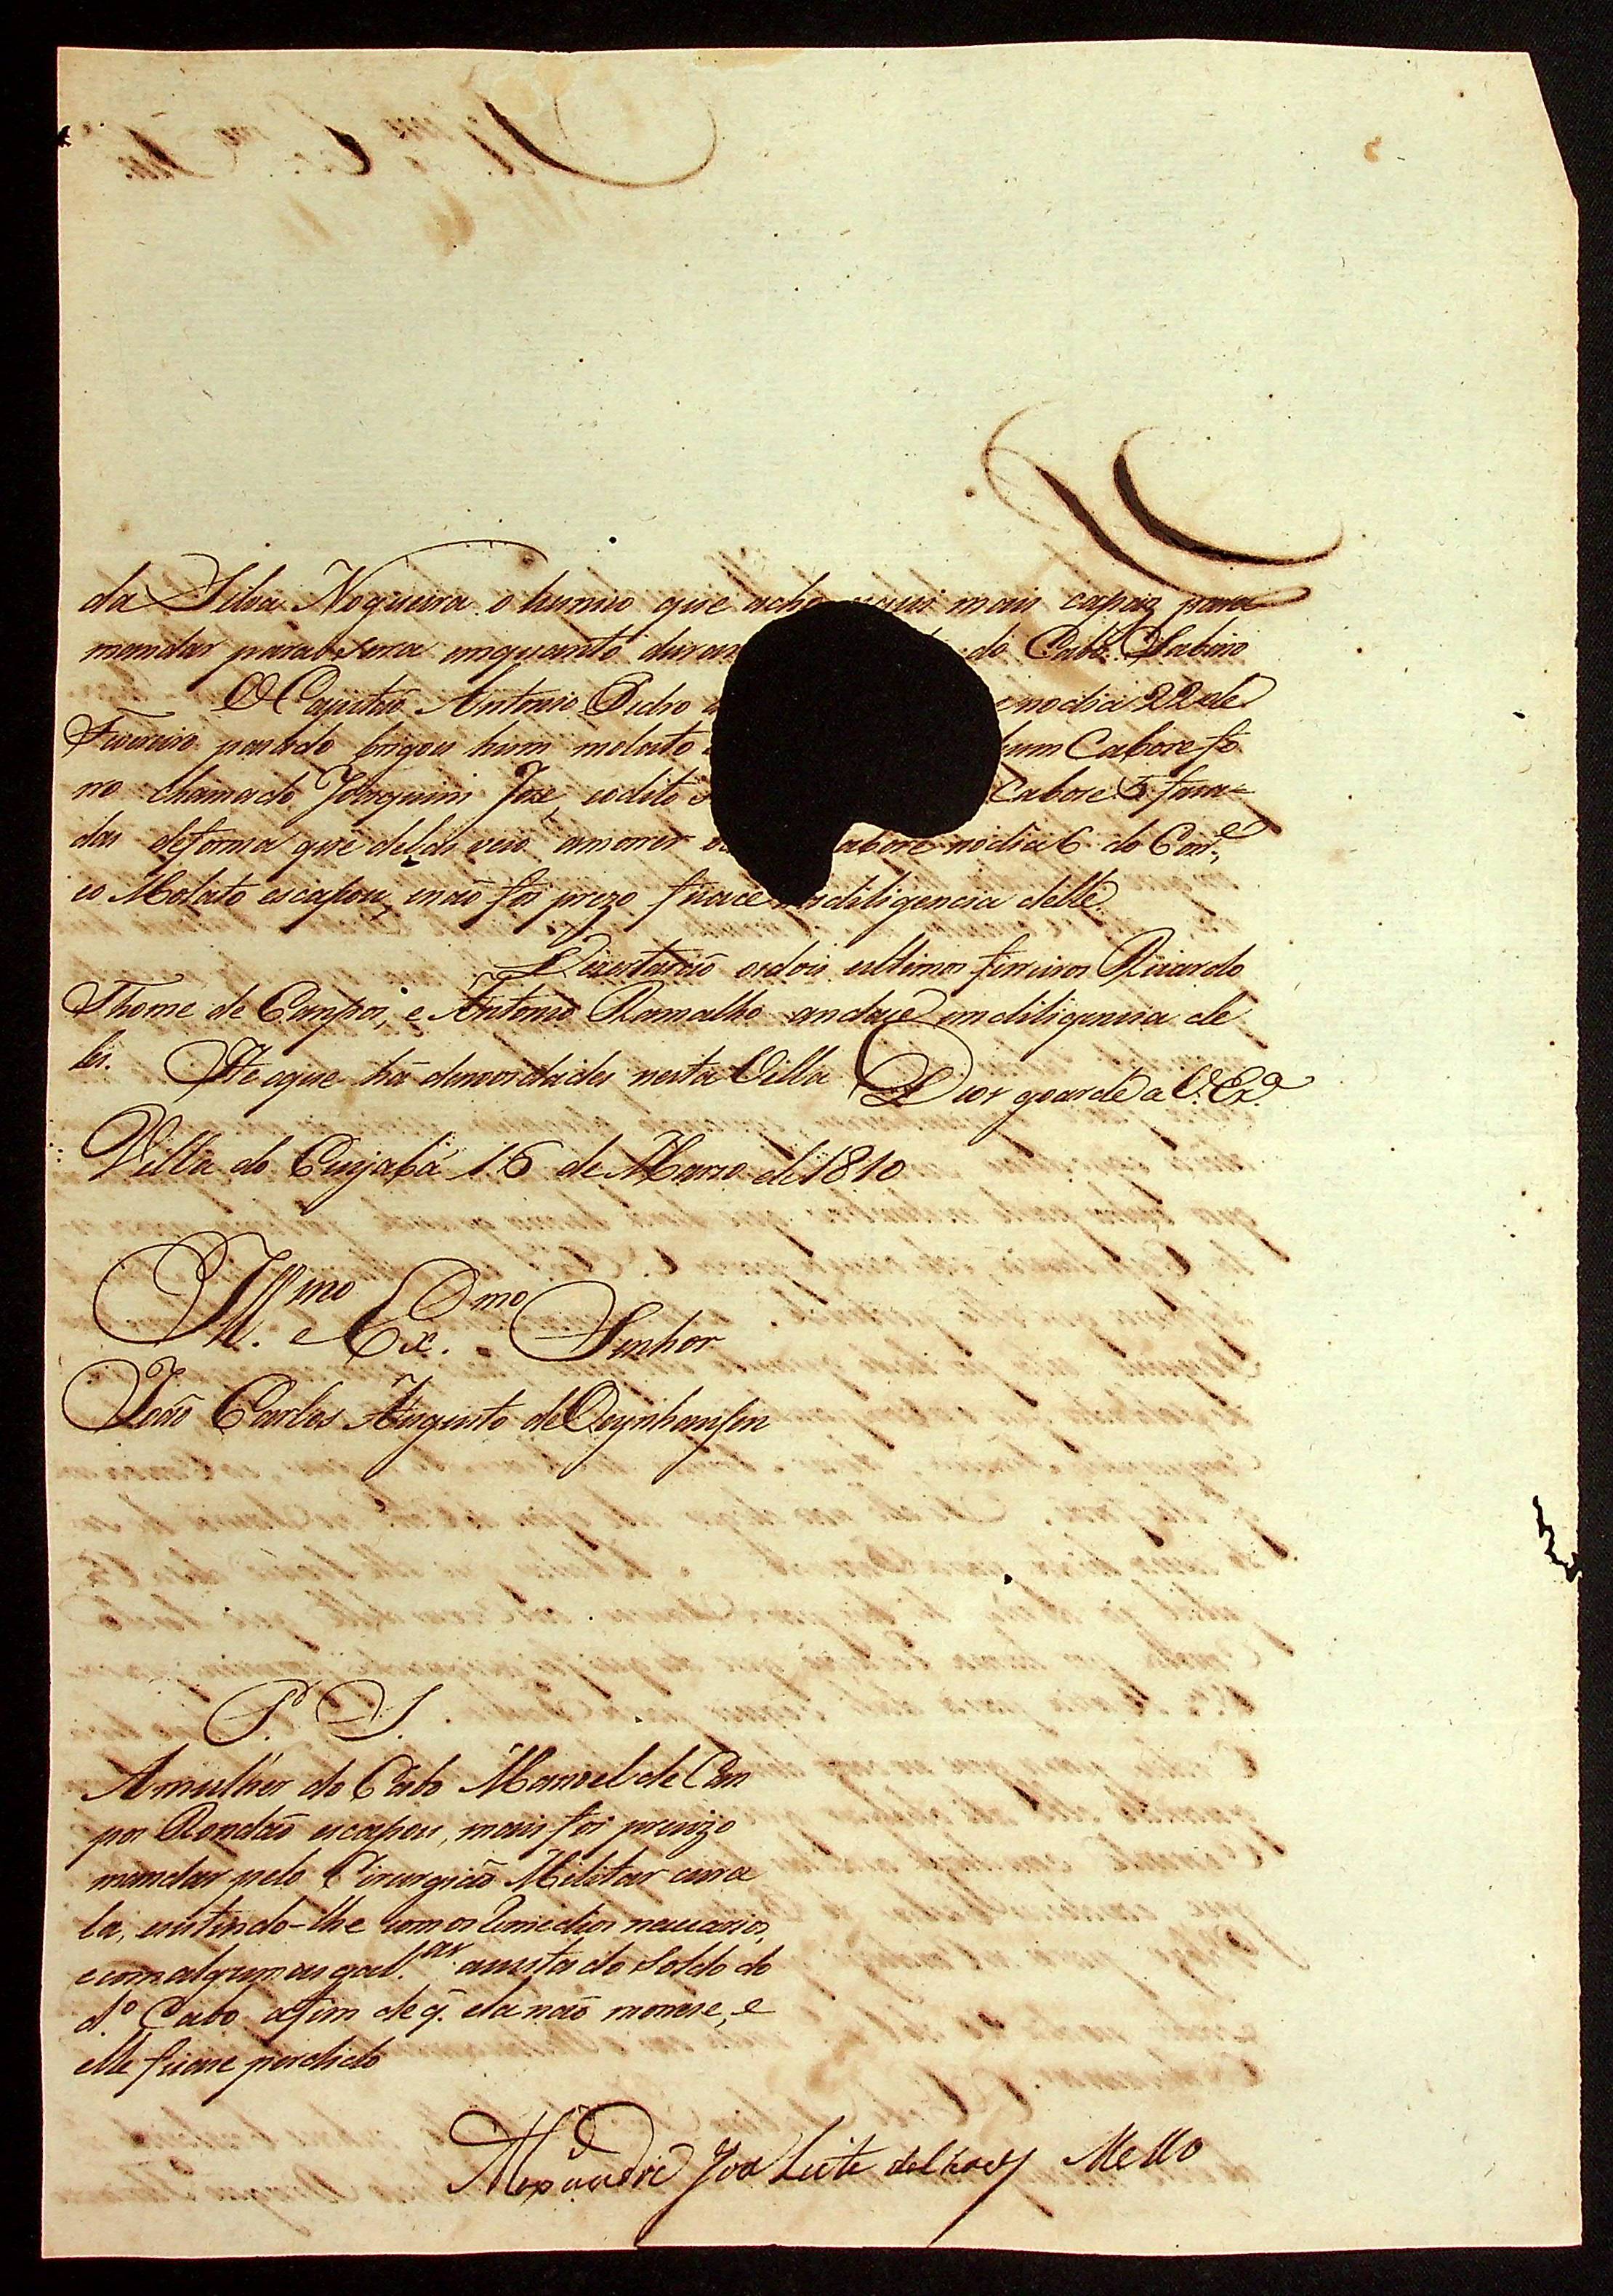 da Silva Nogueira o hunico que acho aqui mais capaz para
mandar para emquanto do Cabo Sabino
O Capitaõ Antonio Pedro no dia 22 de
Fevereiro passado brigou hum molato hum Cabore fo
rro chamado Joaquim Joze, eodito Cabore 5 faca=
das deforma que delas veio amorrer abore nodia 6 do Corr.e,
eo Molato escapou, enaõ foi prezo ficace diligencia delle.
Dezertaraõ osdois ultimos ferreiros Ricardo
Thome de Campos, e Antonio Ramalho andace em diligencia de
les. He oque há denovidades nesta Villa Deos guarde a V. Ex.a
Villa do Cuyabá 16 de Marso de 1810
Ill.mo e Ex.mo Senhor
Joaõ Carlos Augusto de Oeynhausen
P. S.
A mulher do Cabo Manoel de Cam
pos Rondaõ escapou, mais foi precizo
mandar pelo Cirurgiaõ Militar cura
la, asistindo-lhe comos remedios necesarios,
ecomalgumas gal.as acusta do Soldo do
d.o Cabo afim de q. ela naõ morese, e
elle ficase perdido
Alexandre Joze Leite Mello